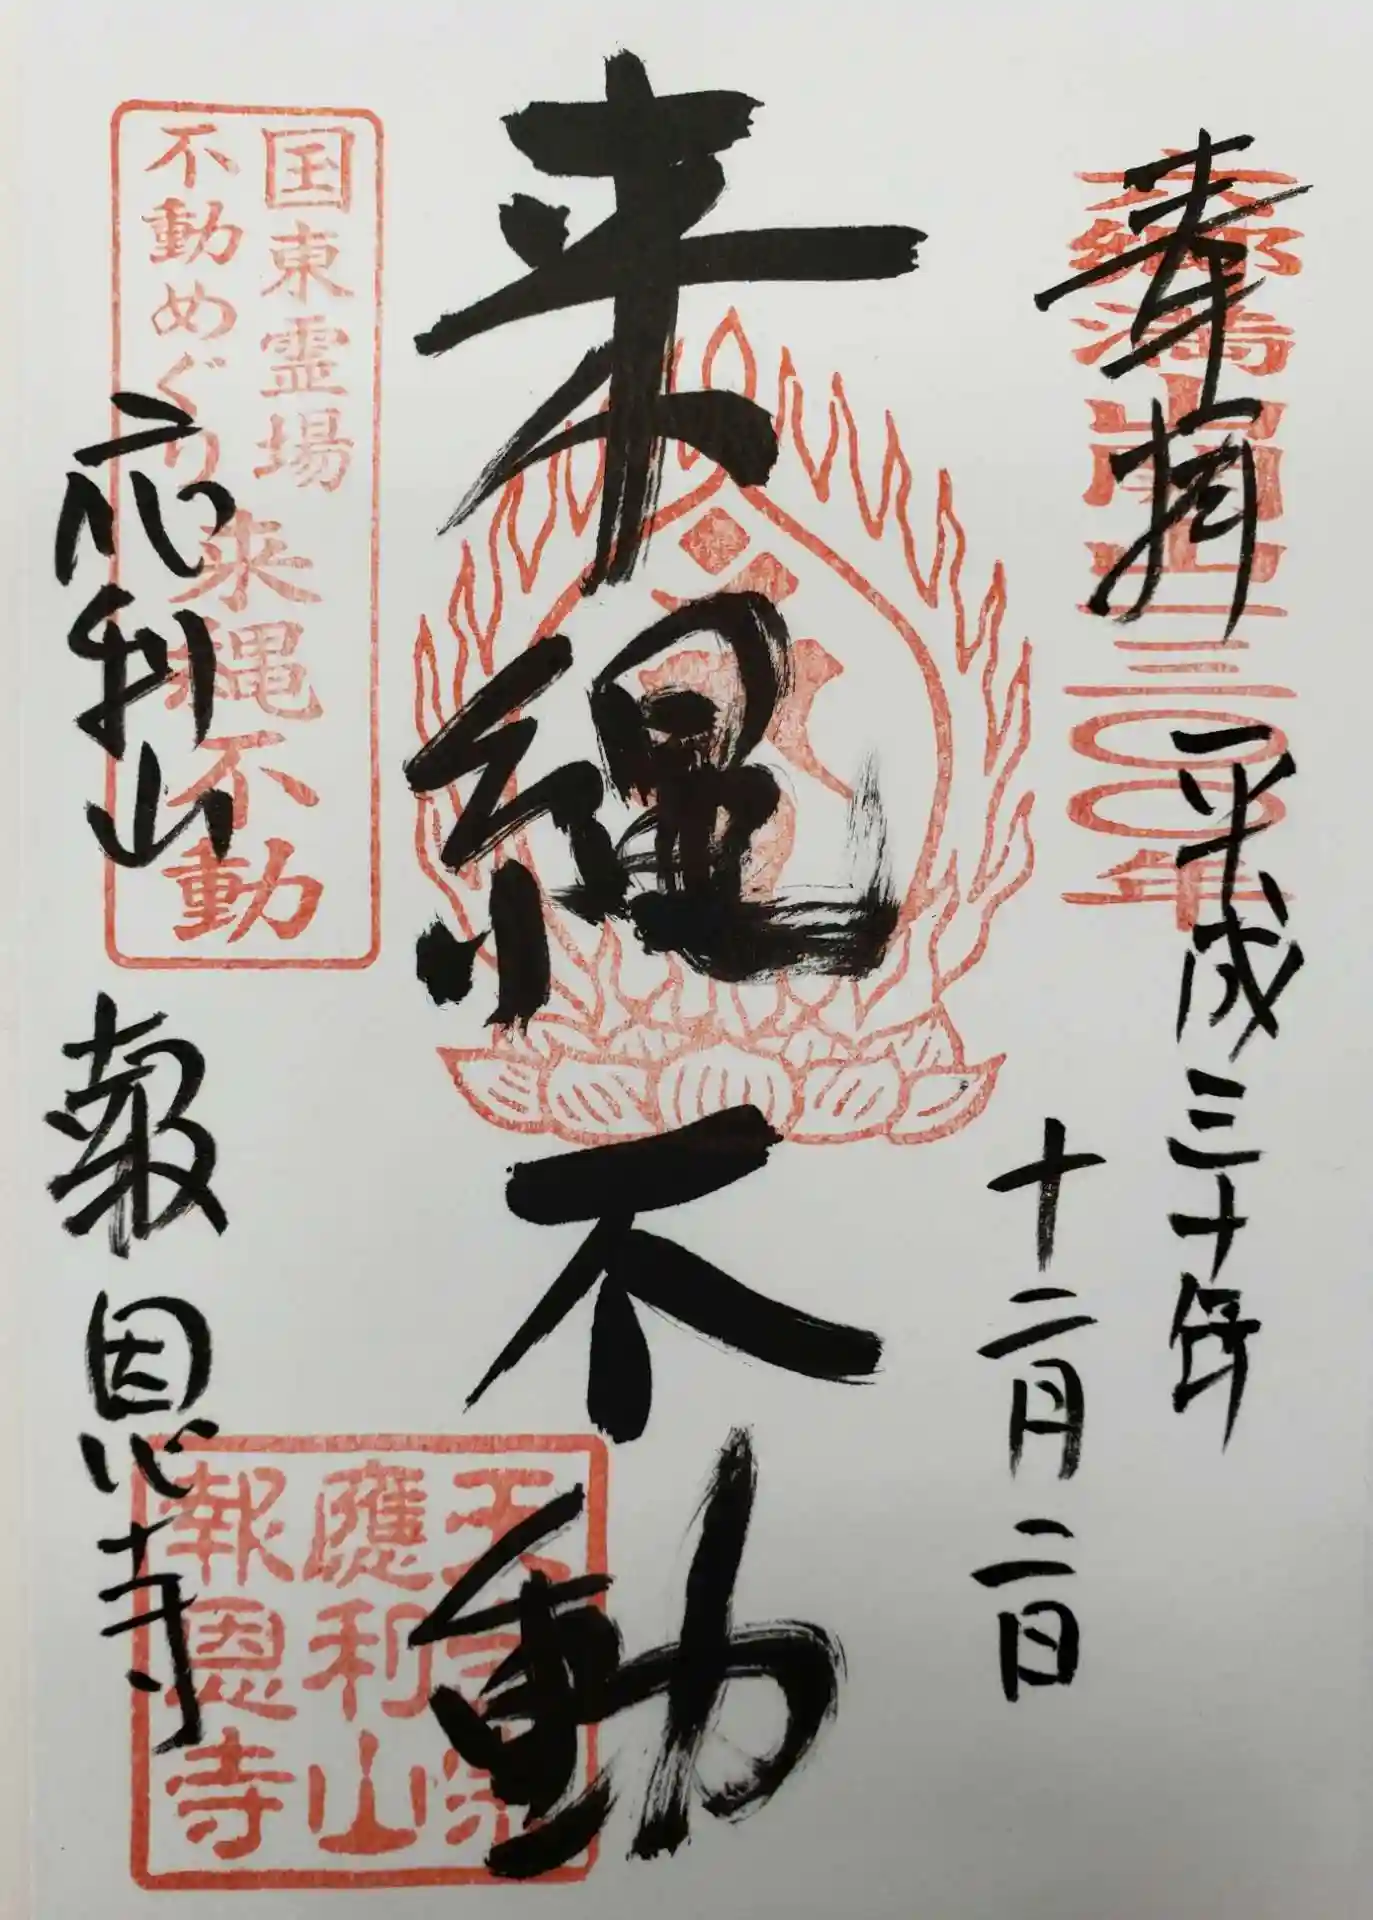 奉拝
六郷満山一三〇〇年
平成三十年
十二月二日
来縄不動
国東霊場
不動めぐり
来縄不動
応利山
報恩寺
天台宗
應利山
報恩寺